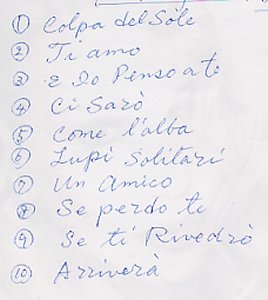 ① Colpa del Sole
② Ti amo
③ E Io Penso a te
④ Ci Sarò
⑤ Come l'alba
⑥ Lupi Solitari
⑦ Un Amico
⑧ Se perdo te
⑨ Se ti Rivedrò
⑩ Arriverà